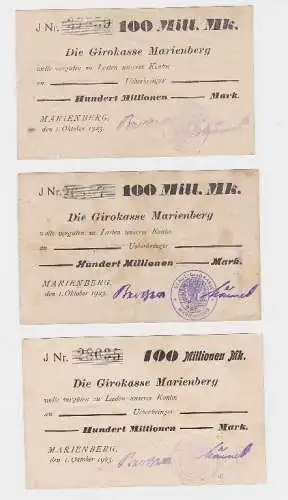 J Nr. 100 Mill. Mk.
Die Girokasse Marienberg
wolle vergüten zu Lasten unseres Konton
an Ueberbringer
Hundert Millionen Mark.
MARIENBERG,
den 1. Oktober 1923.
J Nr. 100 Mill. Mk.
Die Girokasse Marienberg
wolle vergüten zu Lasten unseres Konton
an Ueberbringer
Hundert Millionen Mark.
MARIENBERG,
den 1. Oktober 1923.
J Nr. 28695 100 Millionen Mk.
Die Girokasse Marienberg
wolle vergüten zu Lasten unseres Kontos
an Ueberbringer
Hundert Millionen Mark.
MARIENBERG,
den 1. Oktober 1923.